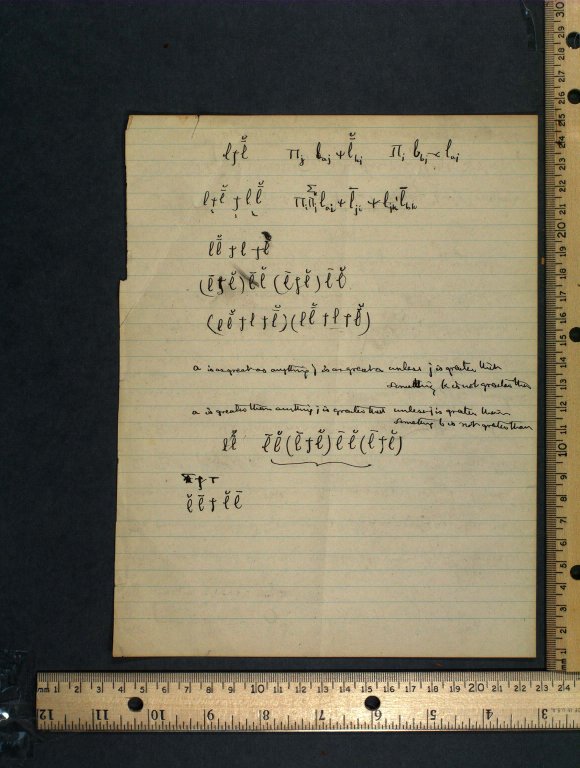 l ɟ l̆̄ Π_j l_aj Ψ l̆̄_bj Π_j l_bj ⤙ l_aj
l ɟ l̆̄ ɟ l l̆̄ Π_i Π_j Σ_k l_aj Ψ l̄_ji Ψ l_jk l̄_bk
l l̆̄ ɟ l ɟ l̆̄
(l̄ ɟ l̆) l̄ l̆ (l̄ ɟ l̆) l̄ l̆
(l l̆̄ ɟ l ɟ l̆̄) (l l̆̄ ɟ l ɟ l̆̄)
a is as great as anything j is as great as unless j is greater than
something k is not greater than
a is greater than anything j is greater than unless j is greater than
something b is not greater than
l l̆̄ l̄ l̆ (l̄ ɟ l̆) l̄ l̆ (l̄ ɟ l̆)
l̆ l̄ ɟ l̆ l̄